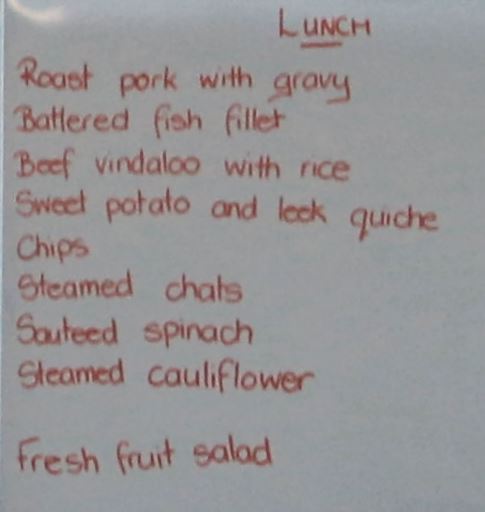 LUNCH
Roast pork with gravy
Battered fish fillet
Beef vindaloo with rice
Sweet potato and leek quiche
Chips
Steamed chats
Sauteed spinach
Steamed cauliflower
Fresh fruit salad